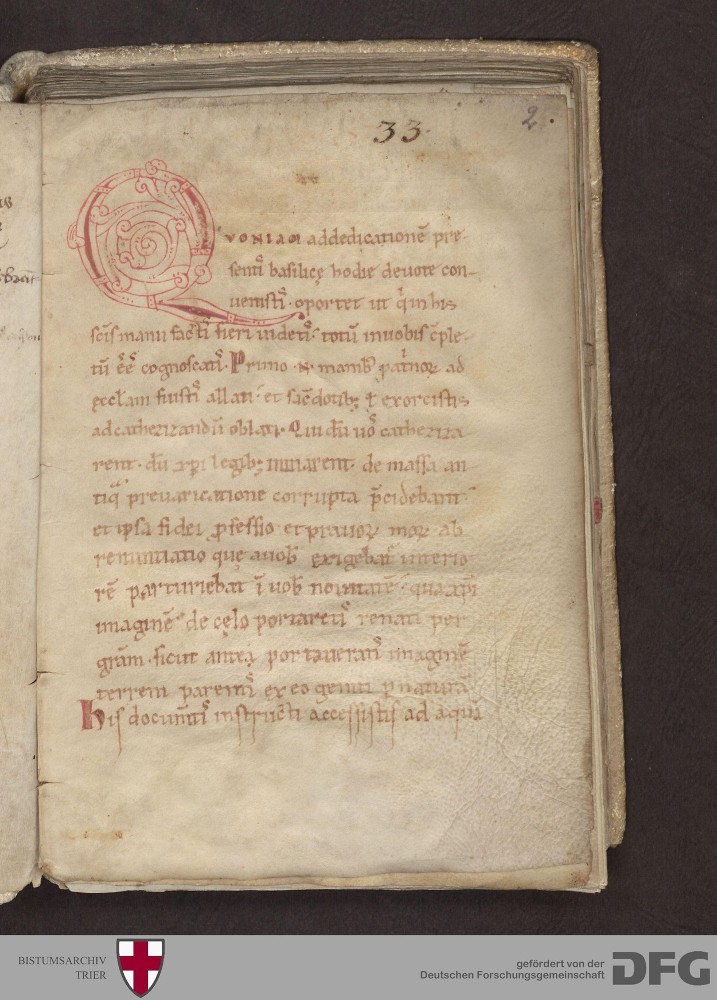 33.
2.
QVONIAM addedicationē pre-
sentis basilicę hodie deuote con-
uenistis · oportet ut q in his
scīs manu factis fieri uidetis · totū inuobis cple-
tū eē cognoscatis · Primo n manib; patnoꝝ ad
ęcclam fuistis allati · et sacdotib; ł exorcistis
adcathezizandū oblati · Qui dū uos catheziza
rent · dū xpi legib; de massa an
tiq preuaricatione corrupta pcidebant ·
et ipsa fidei pfessio et prauoꝝ moꝝ ab
renuntiatio quę auobis exigebat interio
rē parturiebat ī uobis nouitatē · qua xpi
imaginē de cęlo portaretis renati per
gram · sicut anteą portaueratis imaginē
terreni parentis ex eo geniti p naturā
his documtis instructi accessistis ad aqua
BISTUMSARCHIV
TRIER
gefördert von der
Deutschen Forschungsgemeinschaft
DFG